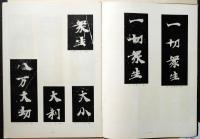 一切衆生
一切衆生
衆生
大小
大利
八万大劫